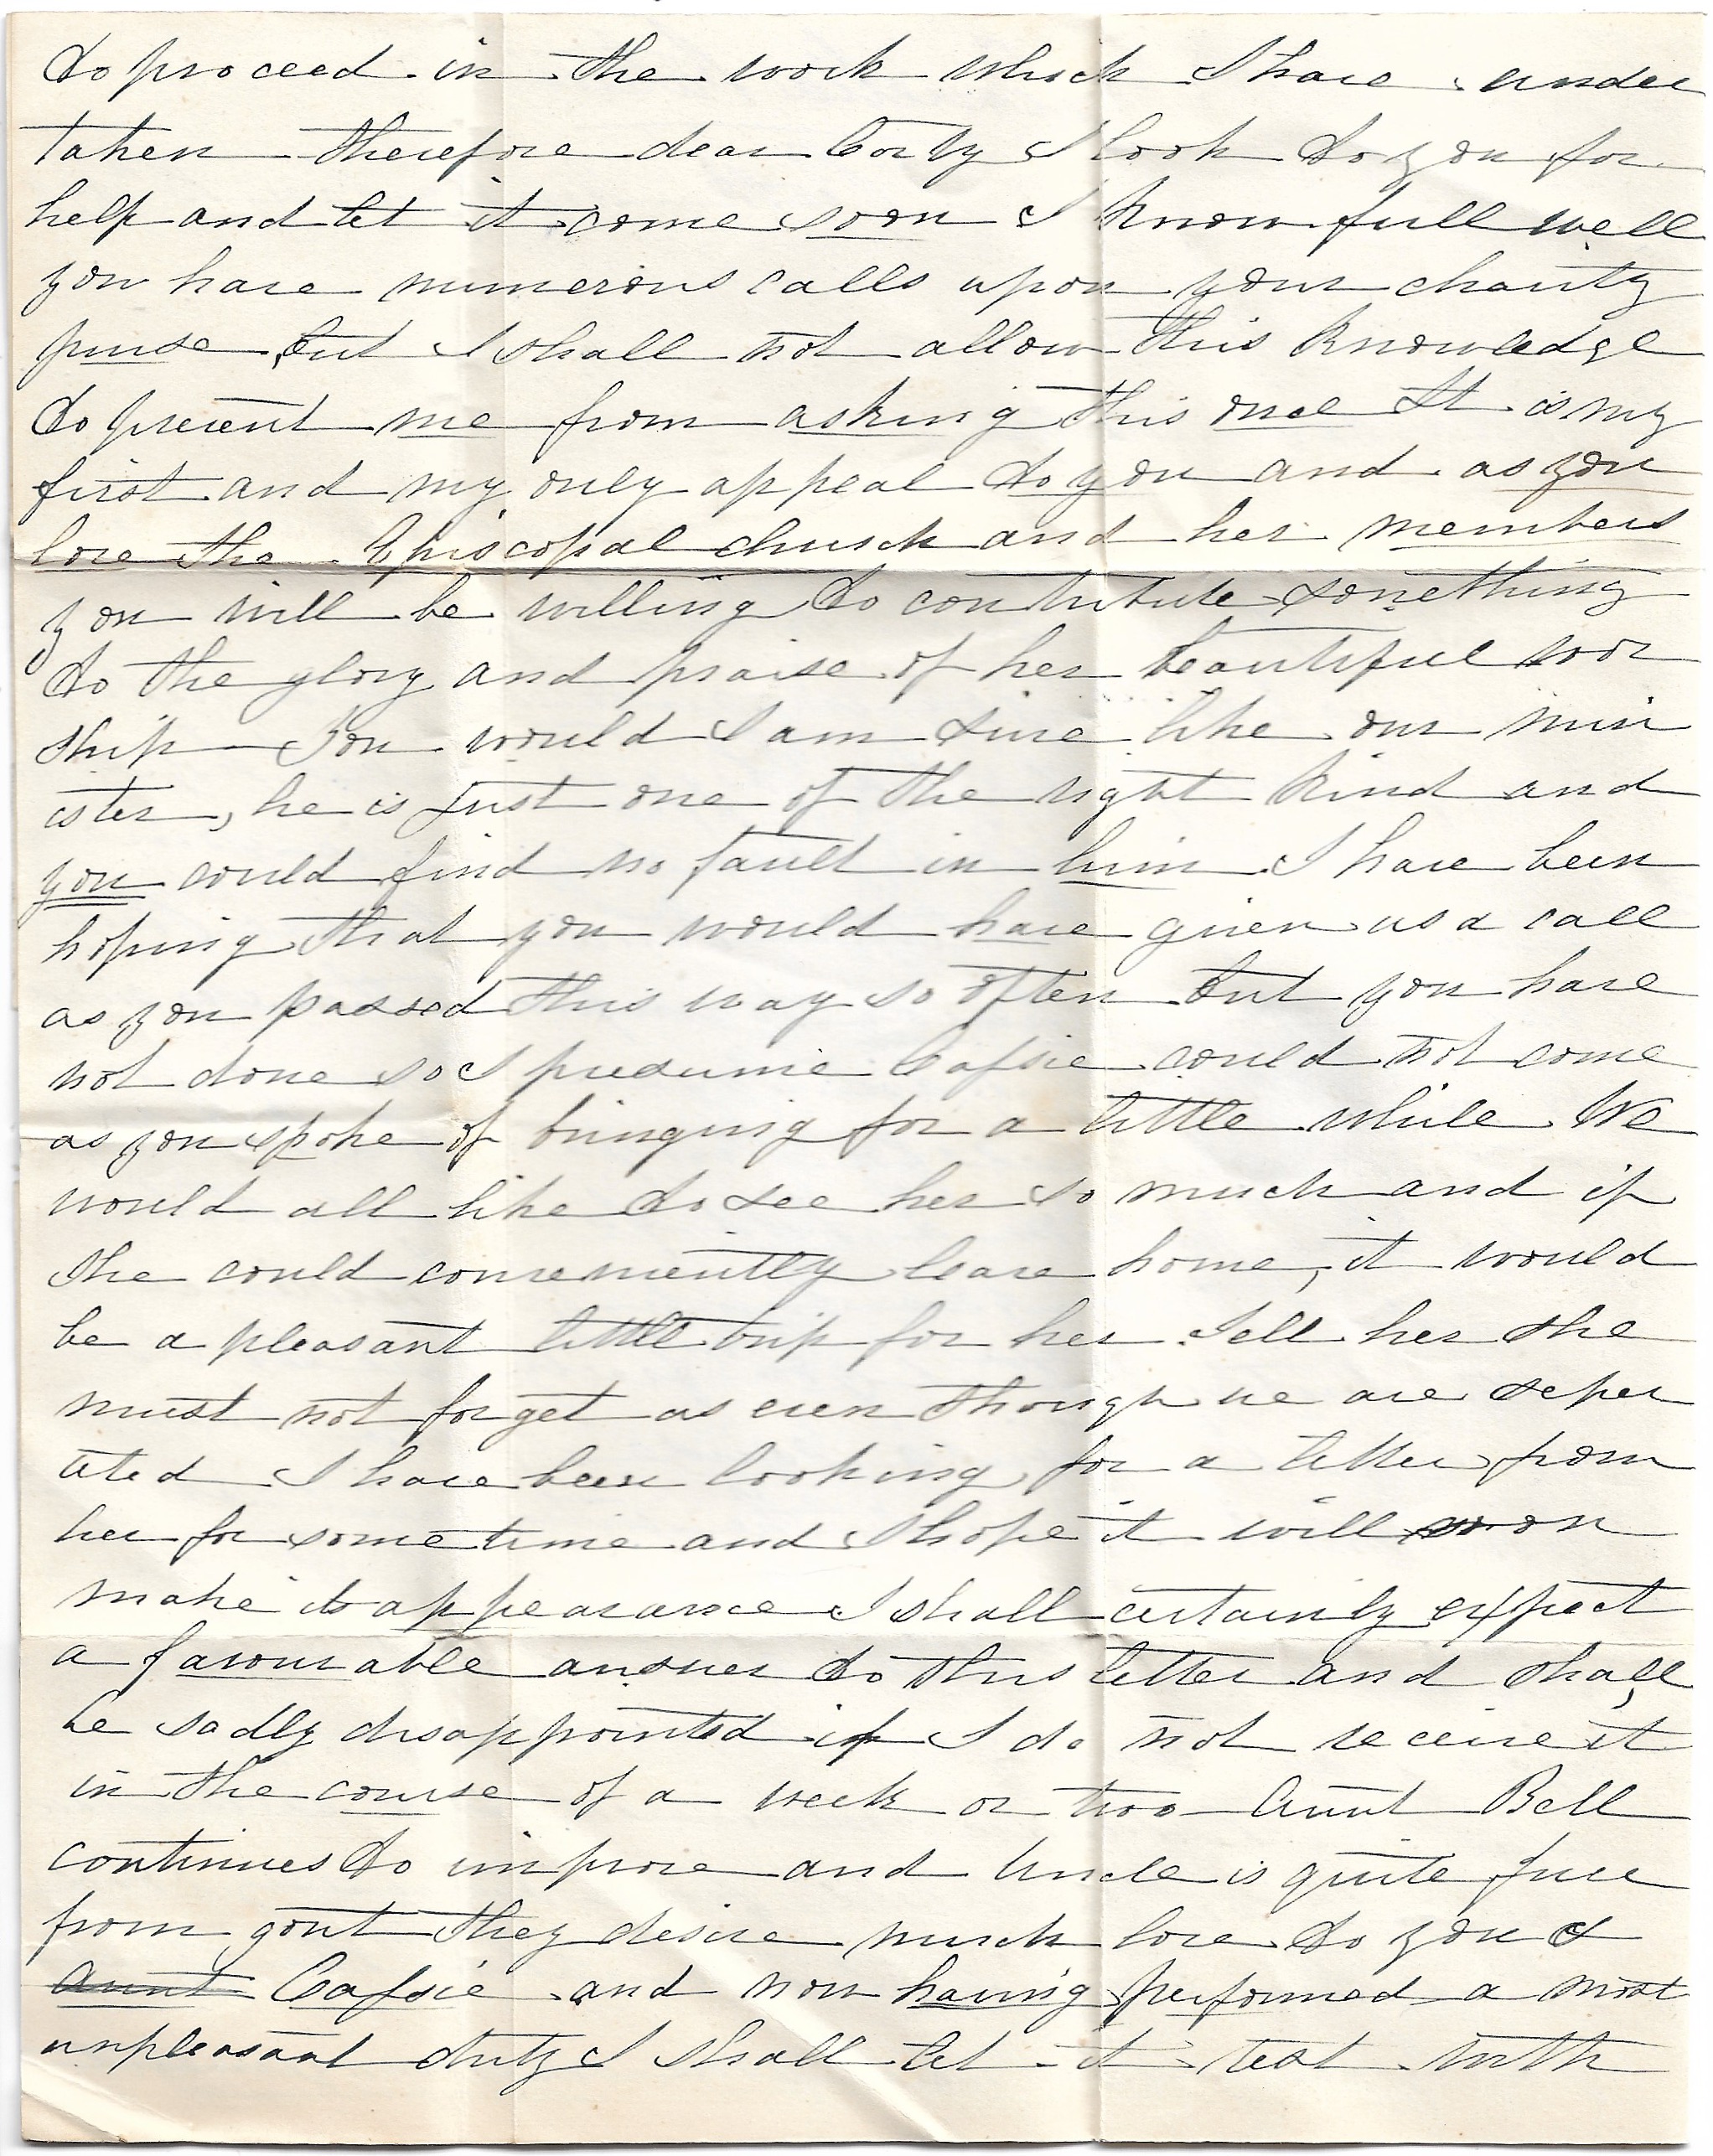 to proceed in the work which I have under
taken therefore dear I look to you for
help and let it come soon I know full well
you have numerous calls upon your charity
purse but I shall not allow this knowledge
to prevent me from asking this once It is my
first and my only appeal to you and as you
love the Episcopal church and her members
you will be willing to contribute something
to the glory and praise of her beautiful wor
ship You would I am sure like our min
ister, he is just one of the right kind and
you could find no fault in him I have been
hoping that you would have given us a call
as you passed this way so often but you have
not done so I presume Cassie could not come
as you spoke of bringing for a little while We
would all like to see her so much and if
she could conveniently leave home, it would
be a pleasant little trip for her Tell her she
must not forget us even though we are seper
ated I have been looking for a letter from
her for some time and I hope it will soon
make its appearance I shall certainly expect
a favourable answer to this letter and shall
be sadly disappointed if I do not receive it
in the course of a week or two Aunt Bell
continues to improve and Uncle is quite free
from gout they desire much love to you &
Aunt Cassie and now having performed a most
unpleasant duty I shall let it rest with